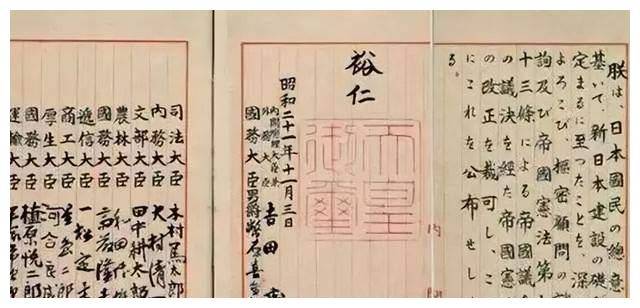 朕は、日本國民の總意
基いて、新日本建設の礎
定まるに至つたことを、深
よろこび、樞密顧問の
詢及び帝國憲法第
十三條による帝國
の議決を經た帝國憲
の改正を裁可し、こ
にこれを公布せし
る。
裕仁
天皇御璽
昭和二十一年十一月三日
內閣總理大臣兼
外務大臣 吉田
國務大臣 男爵 幣原喜
司法大臣 木村篤太郎
內務大臣 大村清一
文部大臣 田中耕太郎
農林大臣 和田
國務大臣 齋藤隆夫
遞信大臣 一松定
商工大臣 星島二郎
厚生大臣 河合良成
國務大臣 植原悅二郎
運輸大臣 平塚常次
內